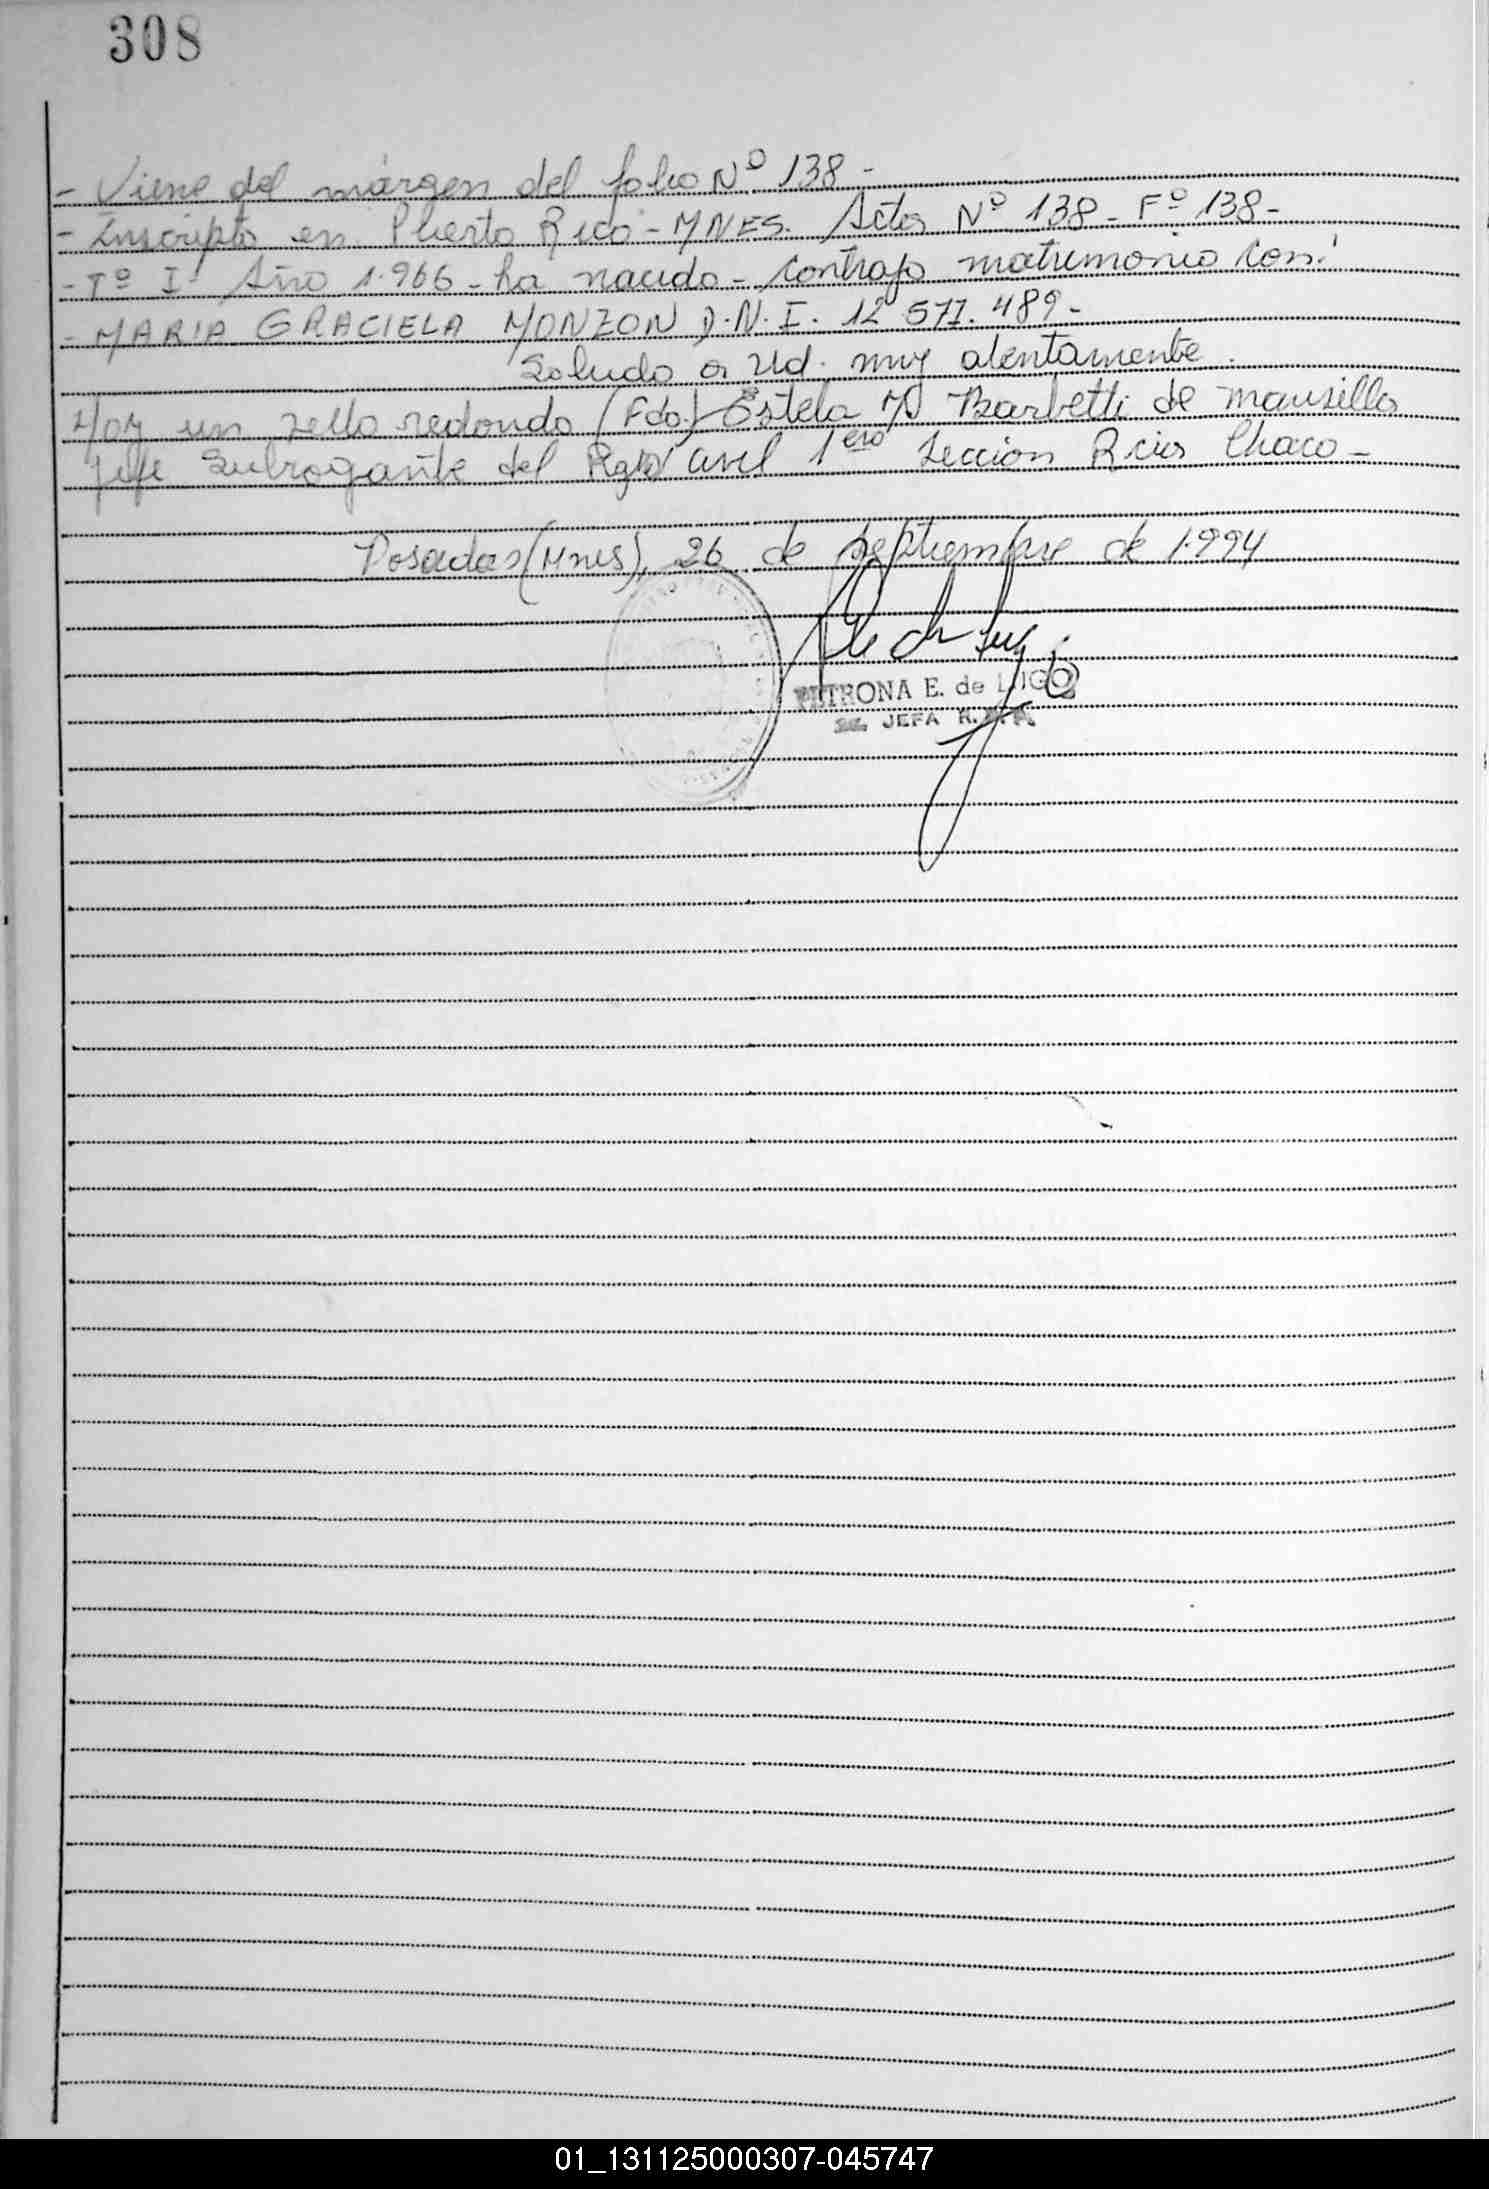 308
- Viene del márgen del folio Nº 138 -
- Inscripto en Puerto Rico - MNES. Acta Nº 138 - Fº 138 -
- Tº I Año 1.966 - ha nacido - Contrajo matrimonio con:
- MARIA GRACIELA MONZON D.N.I. 12 571.489 -
Saludo a Ud. muy atentamente.
Hay un sello redondo (Fdo.) Estela M Barbetti de Mansilla
Jefe Subrogante del Rgtro Civil 1era Sección Rcia Chaco -
Posadas (Mnes), 26 de septiembre de 1.994
PETRONA E. de LUGO
JEFA
01_131125000307-045747